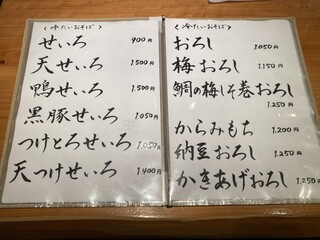 〈冷たいおそば〉
せいろ 900円
天せいろ 1.500円
鴨せいろ 1.500円
黒豚せいろ 1.050円
つけとろせいろ 1.050円
天つけせいろ 1.400円
〈冷たいおそば〉
おろし 1.050円
梅おろし 1.150円
鯛の梅しそ巻おろし
1.250円
からみもち 1.200円
納豆おろし 1.250円
かきあげおろし 1.250円